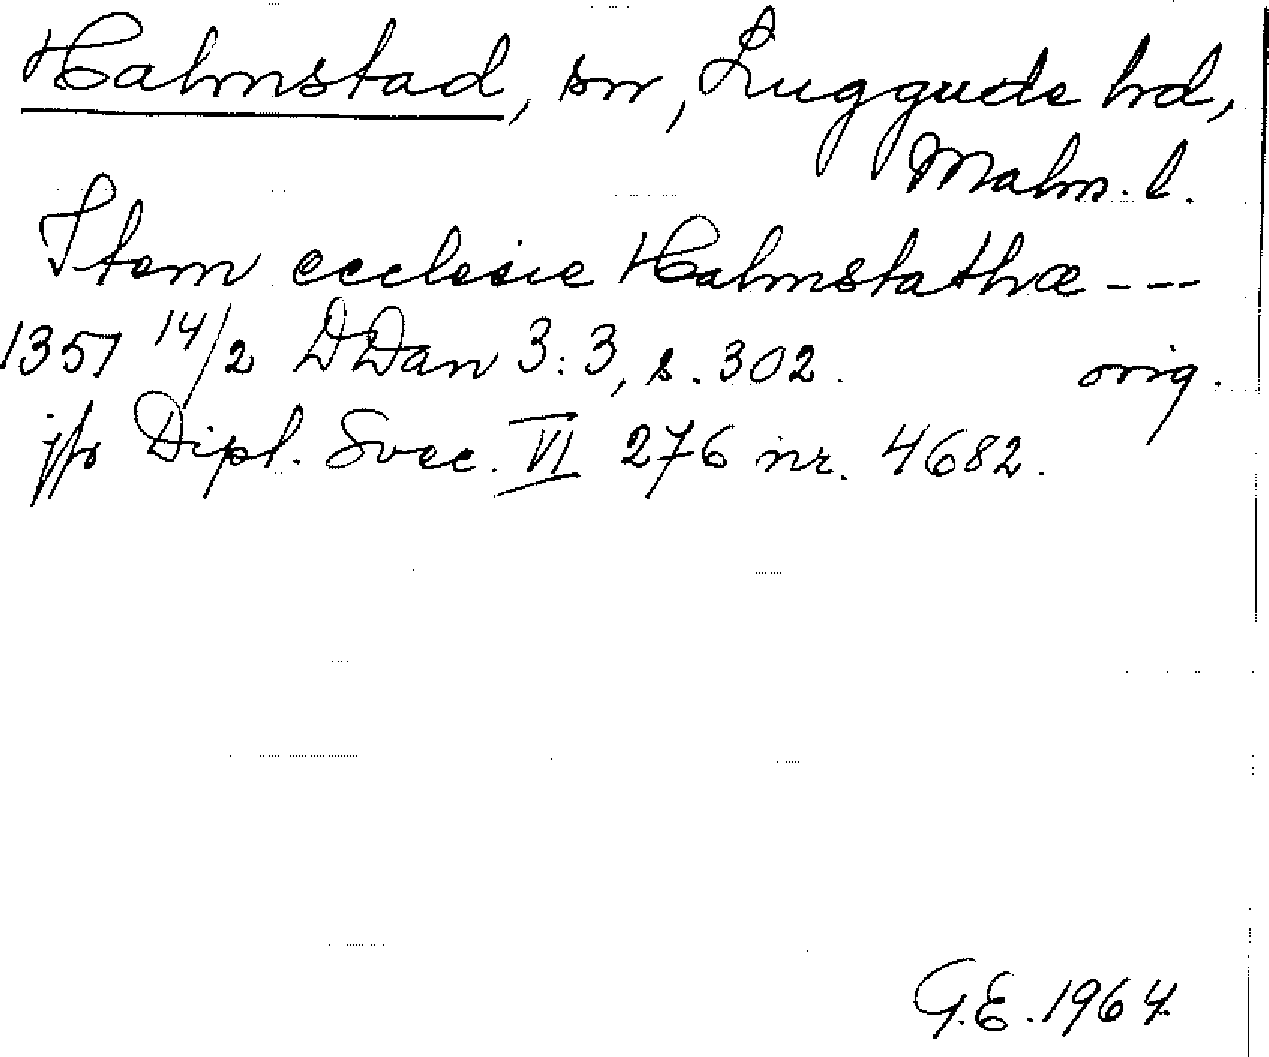 Halmstad, sn, Luggude hd,
Malm. l.
Item ecclesie Halmstathæ ---
1351 14/2 DDan 3:3, s. 302. orig.
jfr Dipl. Svec. VI 276 nr. 4682.
G.E. 1964.